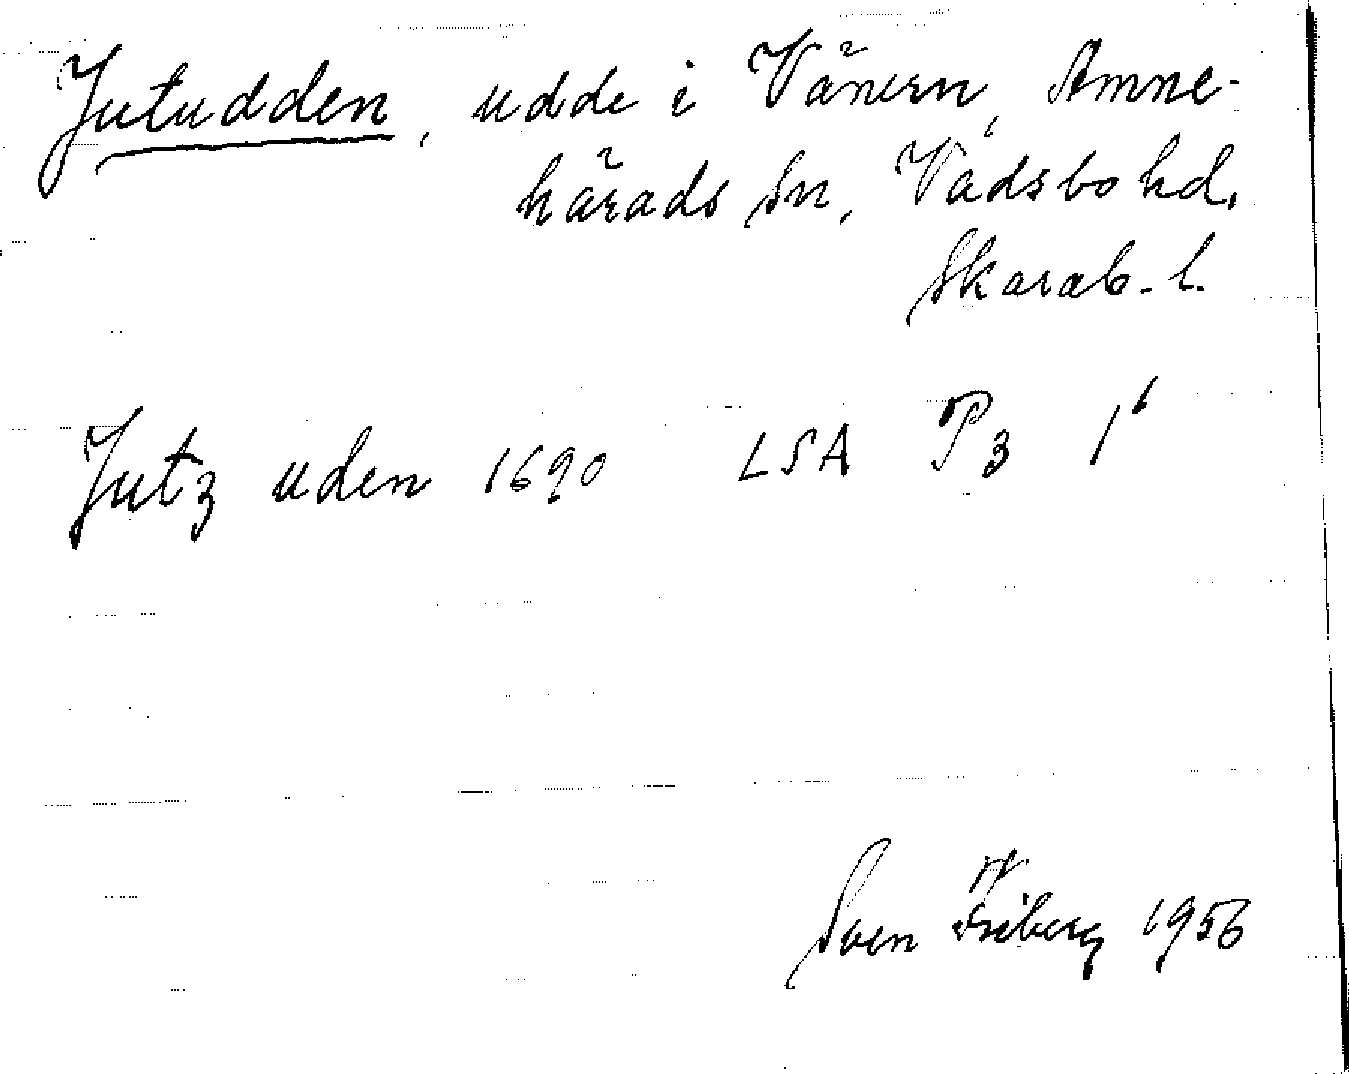 Jutudden, udde i Vänern, Amne-
härads sn, Vadsbo hd,
Skarab. l.
Jutz uden 1690 LSA P3 1⁶
Sven Friberg 1956